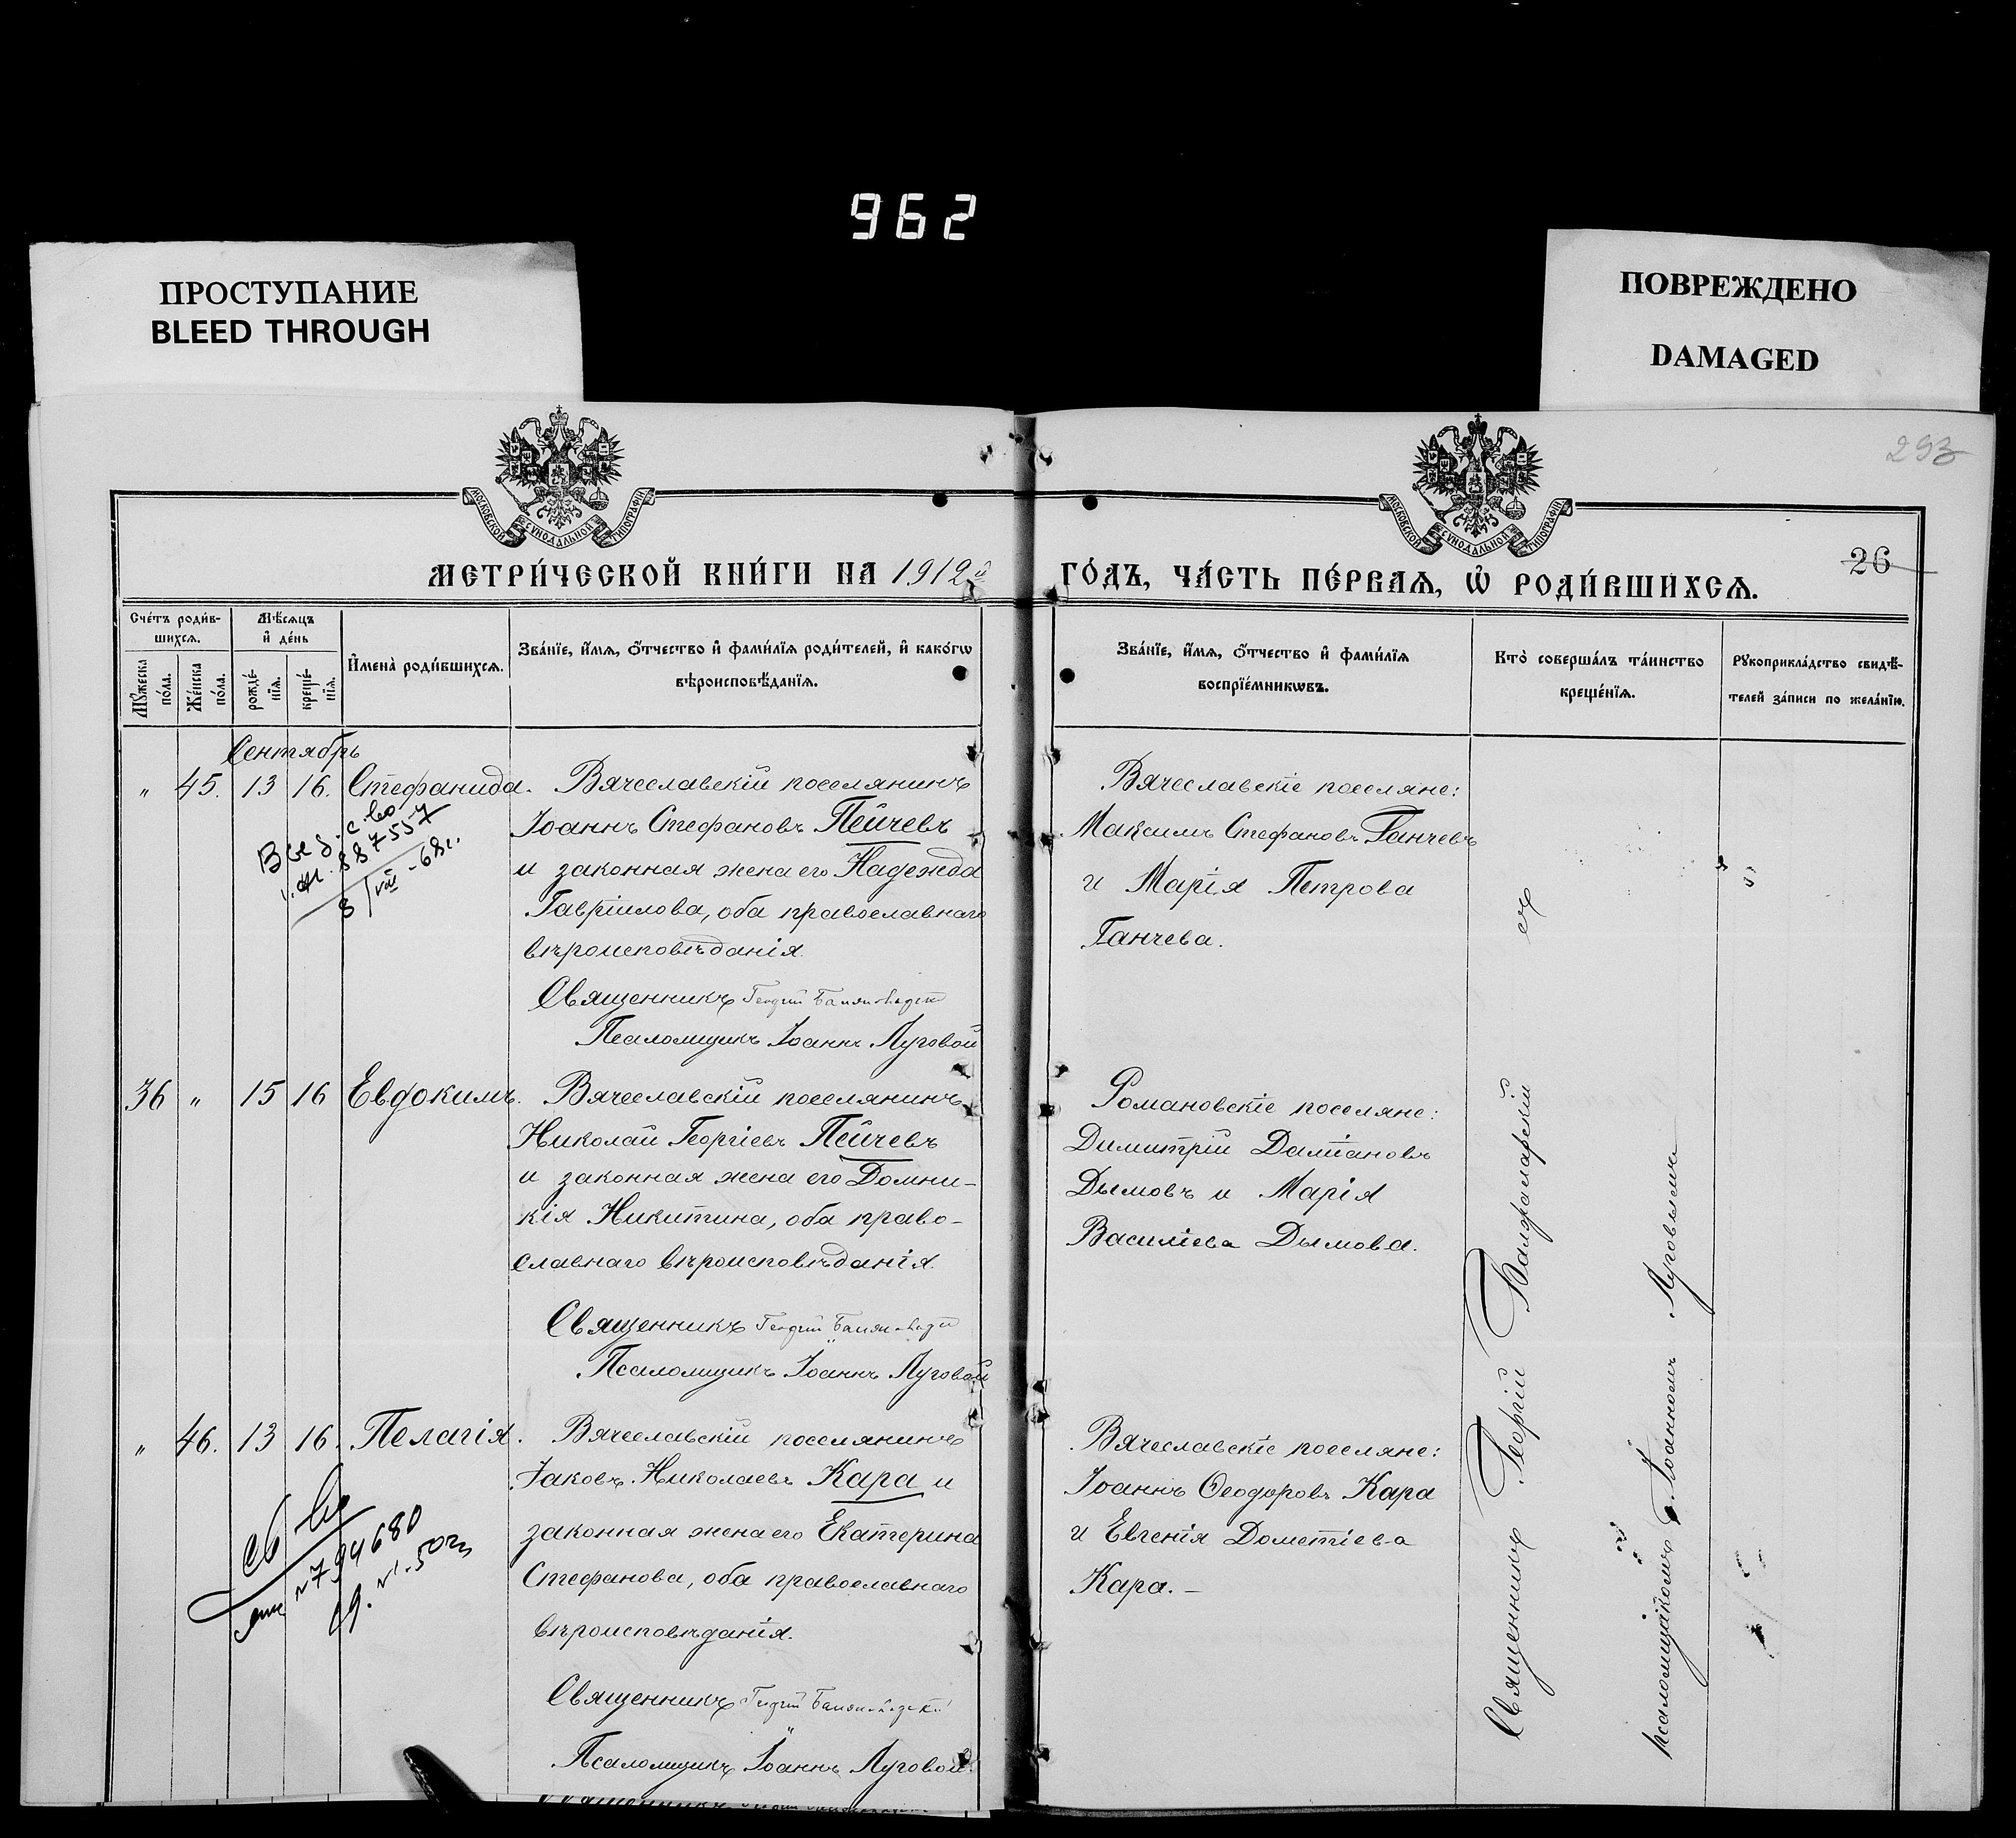 962
ПРОСТУПАНИЕ
BLEED THROUGH
ПОВРЕЖДЕНО
DAMAGED
293
МОСКОВСКОЙ СУНОДАЛЬНОЙ ТИПОГРАФІИ
МОСКОВСКОЙ СУНОДАЛЬНОЙ ТИПОГРАФІИ
26
МЕТРИ́ЧЕСКОЙ КНИ́ГИ НА 1912й ГО́ДЪ, ЧА́СТЬ ПЕ́РВАЯ, Ѡ РОДИ́ВШИХСЯ.
Сче́тъ роди́в-
шихся.
Мѣсяцъ
и де́нь
Мꙋжеска
по́ла.
Же́нска
по́ла.
рожде́-
нїя.
креще́-
нїя.
Имена̀ роди́вшихся.
Зва́нїе, и́мя, о́тчество и фами́лїя роди́телей, и како́гѡ
вѣроисповѣ́данїя.
Зва́нїе, и́мя, о́тчество и фами́лїя
воспрїе́мникѡвъ.
Кто̀ соверша́лъ та́инство
креще́нїя.
Рꙋкоприкла́дство свидѣ́-
телей за́писи по жела́нїю.
Сентябрь
" 45. 13 16. Стефанида. Вячеславскій поселянинъ
Іоаннъ Стефановъ Пейчевъ
и законная жена его Надежда
Гавріилова, оба православнаго
вѣроисповѣданія.
Священникъ Георгій
Псаломщикъ Іоаннъ Луговой
887557
8/VIII-68г.
Вячеславскіе поселяне:
Максимъ Стефановъ Ганчевъ
и Марія Петрова
Ганчева.
36 " 15 16 Евдокимъ. Вячеславскій поселянинъ
Николай Георгіевъ Пейчевъ
и законная жена его Домни-
кія Никитина, оба право-
славнаго вѣроисповѣданія.
Священникъ Георгій
Псаломщикъ Іоаннъ Луговой
Романовскіе поселяне:
Димитрій Даміановъ
Дымовъ и Марія
Василіева Дымова.
" 46. 13 16. Пелагія. Вячеславскій поселянинъ
Іаковъ Николаевъ Кара и
законная жена его Екатерина
Стефанова, оба православнаго
вѣроисповѣданія.
Священникъ Георгій
Псаломщикъ Іоаннъ Луговой.
№794680
Вячеславскіе поселяне:
Іоаннъ Ѳеодоровъ Кара
и Евгенія Дометіева
Кара. –
Священникъ Георгій
съ
псаломщикомъ Іоанномъ Луговымъ